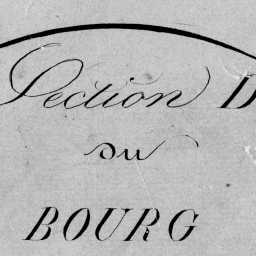 Section D
du
BOURG